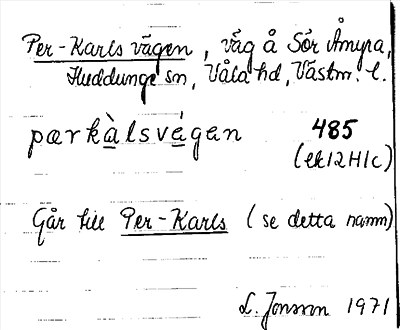 Per-Karls vägen, väg å Sör Åmyra,
Huddunge sn, Våla hd, Västm. l.
pærkàlsvégen 485
(ek12H1c)
Går till Per-Karls (se detta namn)
L. Jonsson 1971